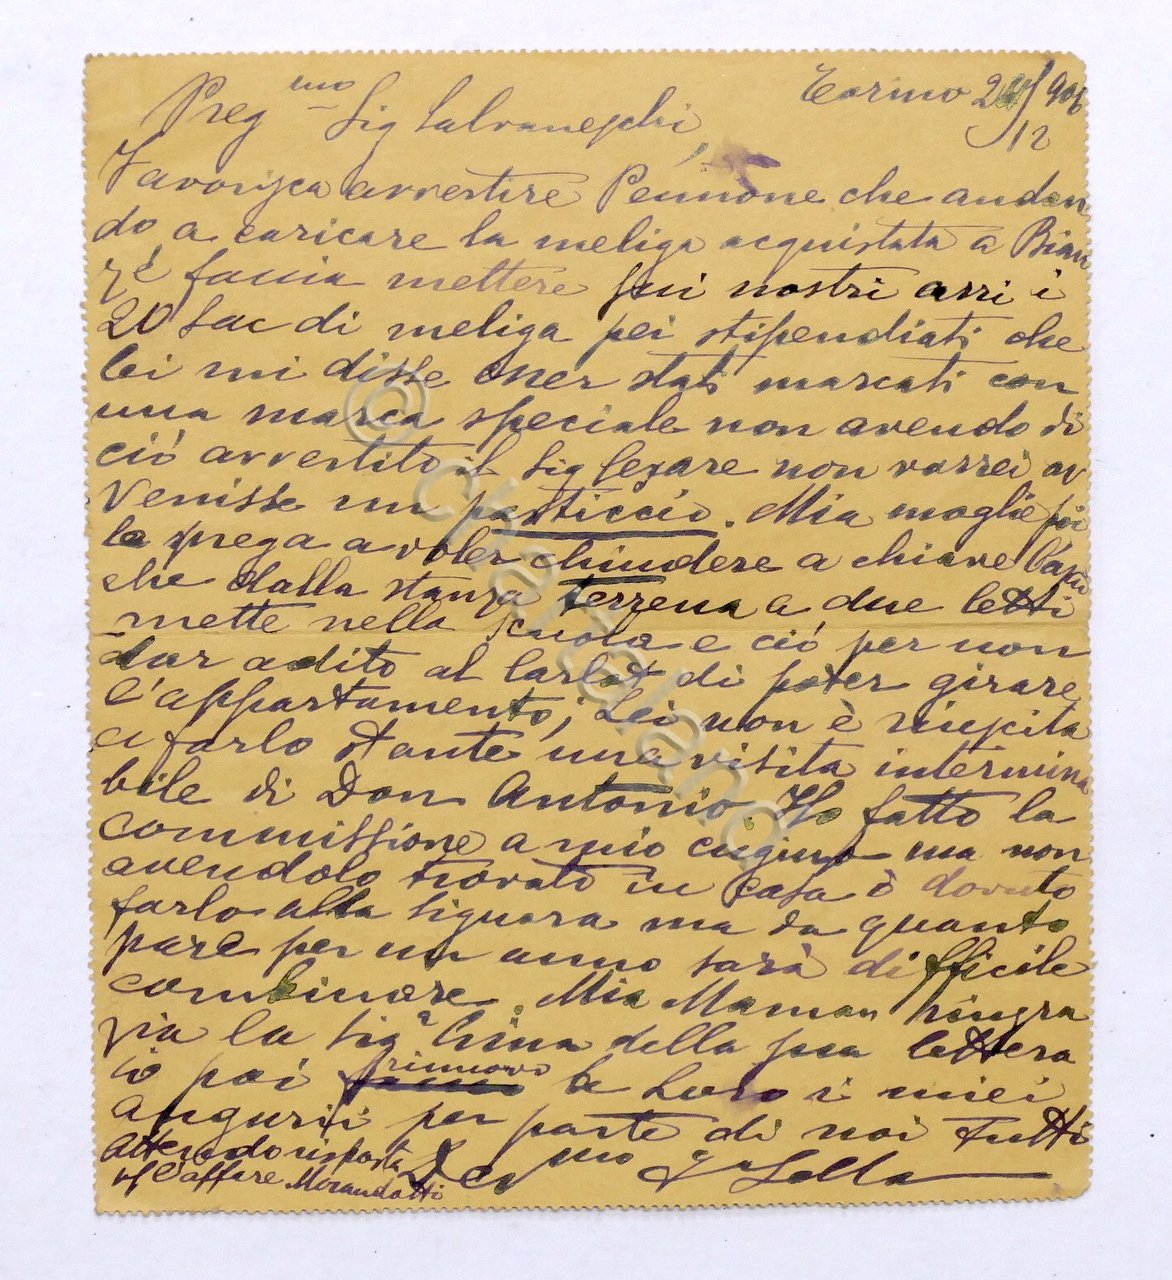 Torino 24/906
12
Preg^mo Sig Salvaneschi,
Favorisca avvertire Pennone che andan
do a caricare la meliga acquistata a Bian
zé faccia mettere sui nostri carri i
20 Sac di meliga pei stipendiati che
lei mi disse esser stati marcati con
una marca speciale non avendo di
ciò avvertito il Sig Cesare non vorrei av
venisse un pasticcio. Mia moglie poi
la prega a voler chiudere a chiave l'usci
che dalla stanza terrena a due letti
mette nella scuola e ciò per non
dar adito al di poter girare
l'appartamento; Lei non è riuscita
a farlo stante una visita intermina
bile di Don Antonio. Ho fatto la
commissione a mio cugino ma non
avendolo trovato in casa ò dovuto
farlo alla Signora ma da quanto
pare per un anno sarà difficile
combinare. Mia Maman ringra
zia la Sig^a Lina della sua lettera
io poi rinnovo a Loro i miei
augurii per parte di noi tutti
Attendo risposta Dev^mo Lella
l'affare Morandotti
© chartaland